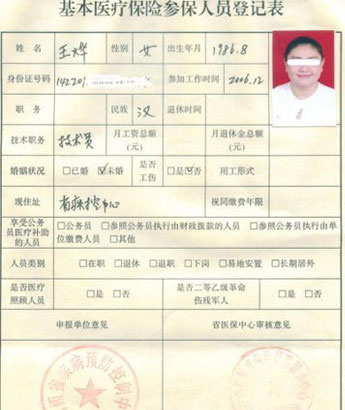 基本医疗保险参保人员登记表
姓名 王大烨 性别 女 出生年月 1986.8
身份证号码 142201 参加工作时间 2006.12
职务 民族 汉 退休时间
技术职务 技术员 月工资总额(元) 月退休金总额(元)
婚姻状况 □已婚 ☑未婚 是否工伤 □是☑否 用工形式
现住址 省疾控中心 视同缴费年限
享受公务员医疗补助的人员 □公务员 □参照公务员执行由财政拨款的人员 □参照公务员执行由单位缴费人员 □其他
人员类别 □在职 □退休 □退职 □下岗 □易地安置 □长期居外
是否医疗照顾人员 □是 □否 是否二等乙级革命伤残军人 □是 □否
申报单位意见 省医保中心审核意见
西省疾病预防控制中